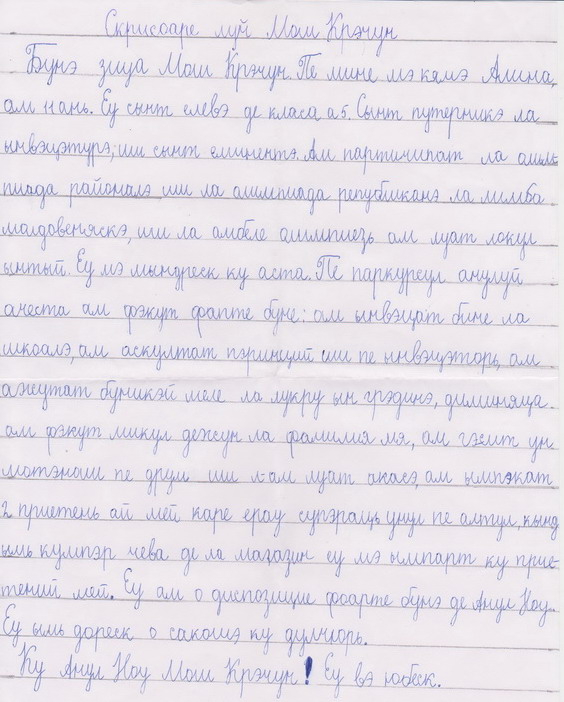 Скрисоаре луй Мош Крэчун
Бунэ зиуа Мош Крэчун. Пе мине мэ камэ Алина,
ам 11 ань. Еу сынт елевэ де класа а 5. Сынт путерникэ ла
ынвэцэтурэ, ши сынт еминентэ. Ам партичипат ла олим-
пиада районалэ ши ла олимпиада републиканэ ла лимба
молдовеняскэ, ши ла амбеле олимпиезь ам луат локул
ынтый. Еу мэ мындреск ку аста. Пе паркурсул анулуй
ачеста ам фэкут фапте буне: ам ынвэцат бине ла
школэ, ам аскултат пэринций ши пе ынвэцэторь, ам
ажеутат буникэй меле ла лукру ын грэдинэ, диминяца
ам фэкут микул дежун ла фамилия мя, ам гэсит ун
мотэнаш пе друм ши л-ам луат акасэ, ам ымпэкат
2 приетень ай мей каре ерау супэраць унул пе алтул, кынд
ымь кумпэр чева де ла магазин еу мэ ымпарт ку прие-
тений мей. Еу ам о диспозицие фоарте бунэ де Анул Ноу.
Еу ымь дореск о сакошэ ку дулчюрь.
Ку Анул Ноу Мош Крэчун! Еу вэ юбеск.